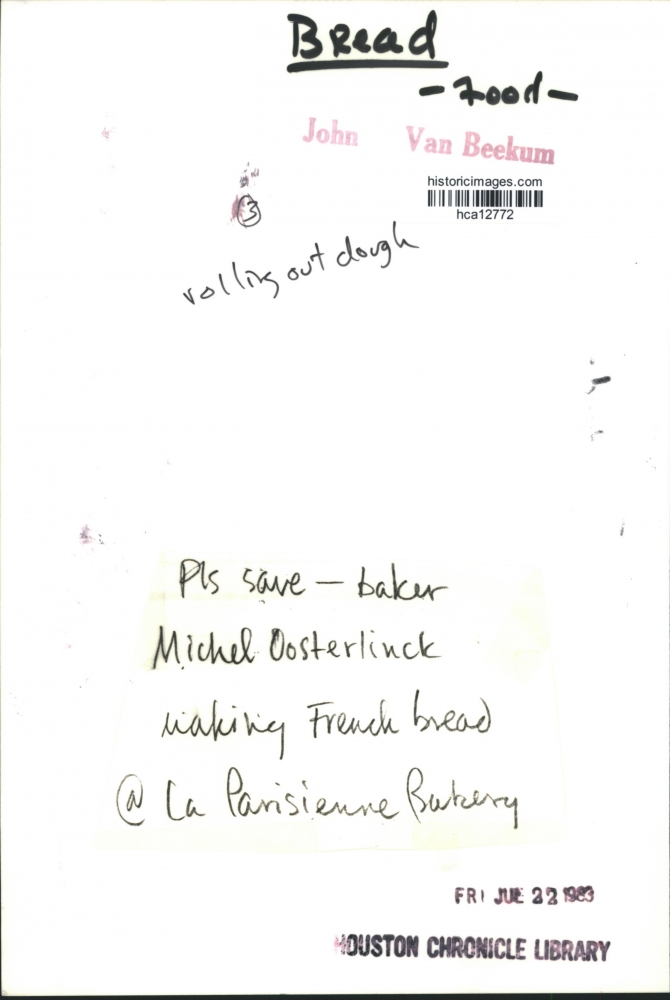 Bread
- Food -
John Van Beekum
historicimages.com
hca12772
3
rolling out dough
Pls save — baker
Michel Oosterlinck
making French bread
@ La Parisienne Bakery
FRI JUL 22 1983
HOUSTON CHRONICLE LIBRARY